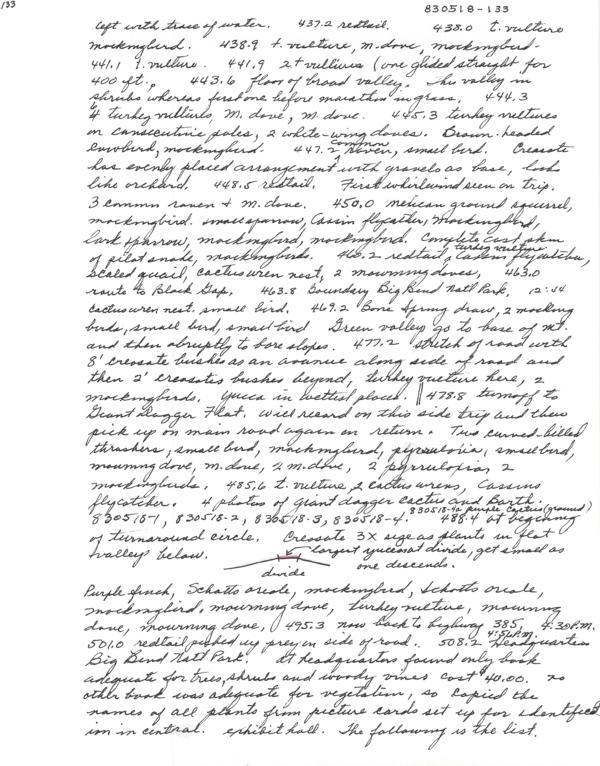 133
830518-133
left with trace of water. 437.2 redtail. 438.0 t. vulture
mockingbird. 438.9 t. vulture, m. dove, mockingbird.
441.1 t. vulture. 441.9 2 t vultures (one glided straight for
400 ft., 443.6 floor of broad valley. This valley in
shrubs whereas first one before marathon in grass, 444.3
4 turkey vultures, M. dove, m. dove. 445.3 turkey vultures
on consecutive poles, 2 white-wing doves. Brown-headed
cowbird, mockingbird. 447.2 common raven, small bird. Creosote
has evenly placed arrangement with gravels as base, looks
like orchard. 448.5 redtail. First whirlwind seen on trip.
3 common raven + M. dove. 450.0 mexican ground squirrel,
mockingbird. small sparrow, Cassin flycatcher, Mockingbird,
lark sparrow, mockingbird, mockingbird. Complete cast skin
of pilot snake, mockingbirds. 460.2 redtail, turkey vulture Cassin flycatcher,
scaled quail, cactus wren nest, 2 mourning doves, 463.0
route to Black Gap, 463.8 Boundary Big Bend Natl Park, 12:44
cactus wren nest. small bird. 469.2 Bone Spring draw, 2 mocking
birds, small bird, small bird Green valley go to base of Mt.
and then abruptly to bare slopes. 477.2 stretch of road with
8' creosote bushes as an avanue along side of road and
then 2' creosotes bushes beyond, turkey vulture here, 2
mockingbirds. Yucca in wettest places. 478.8 turnoff to
Giant Dagger Flat, will record on this side trip and then
pick up on main road again on return. Two curved-billed
thrashers, small bird, mockingbird, pyrruloxia, small bird,
mourning dove, m. dove, 2 m. dove, 2 pyrruloxia, 2
mockingbirds. 485.6 t. vulture, 2 cactus wrens, Cassins
flycatcher. 4 photos of giant dagger cactus and Barth.
830518-1, 830518-2, 830518-3, 830518-4. 830518-4a purple cactus (ground) 488.4 at begining
of turnaround circle. Creosote 3X size as plants in flat
valleys below. largest yuccas at divide, get small as
one descends.
divide
Purple finch, Schotts oreole, mockingbird, Schotts oreole,
mockingbird, mourning dove, turkey vulture, mourning
dove, mourning dove, 495.3 now back to highway 385, 4:30 P.M.
501.0 redtail picked up prey on side of road. 508.2 4:56 P.M. Headquarters
Big Bend Natl Park. At headquarters found only book
adequate for trees, shrubs and woody vines cost $40.00. no
other book was adequate for vegetation, so copied the
names of all plants from picture cards set up for identificat
ion in central exhibit hall. The following is the list.